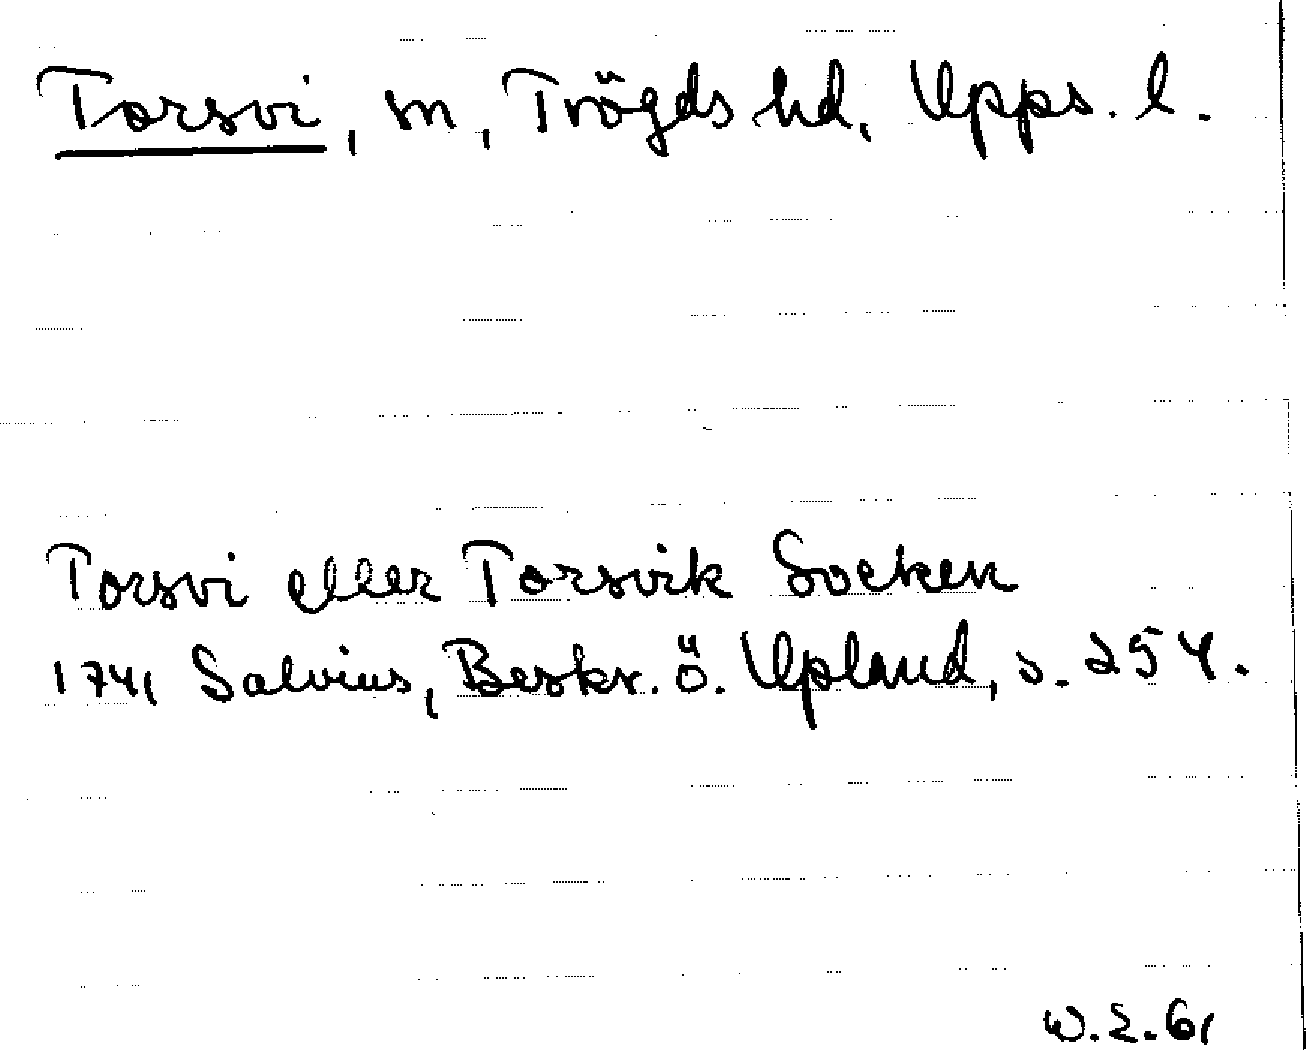 Torsvi, sn, Trögds hd, Upps. l.
Torsvi eller Torsvik Socken
1741 Salvius, Beskr. ö. Upland, s. 254.
W.E.61